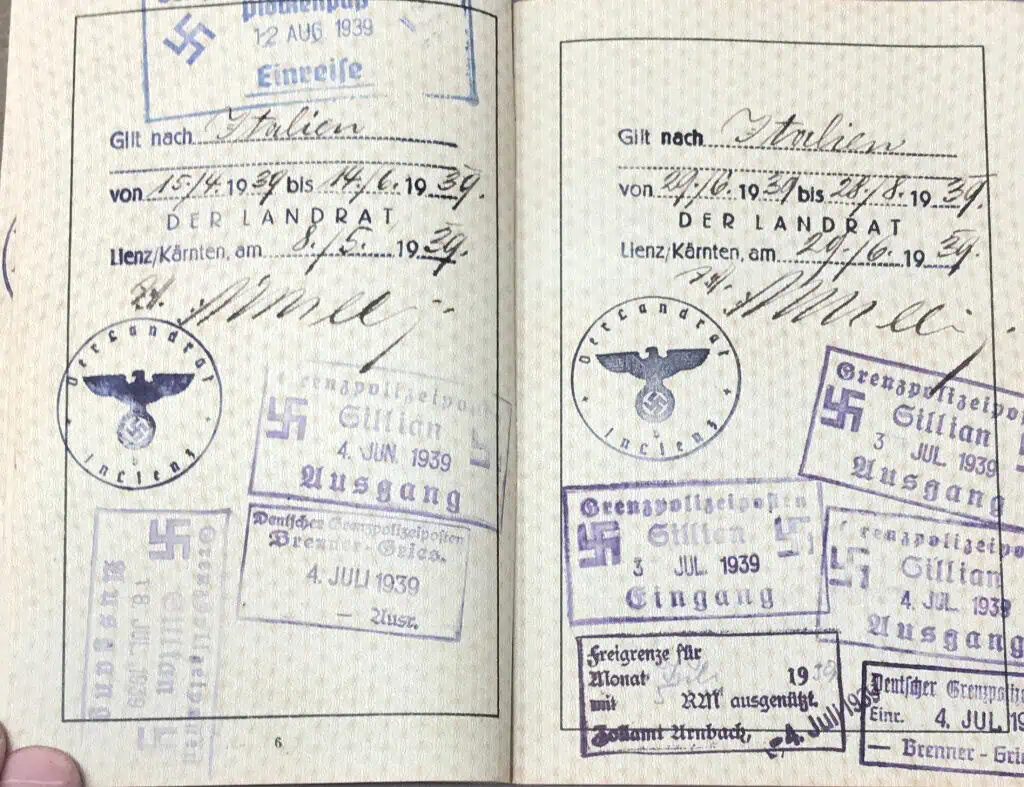 12 AUG 1939
Einreise
Gilt nach Italien
von 15./4. 1939 bis 14./6. 1939.
DER LANDRAT
Lienz/Kärnten, am 8./5. 1939.
Der Landrat
in Lienz
Grenzpolizeiposten
Sillian
4. JUN. 1939
Ausgang
Deutscher Grenzpolizeiposten
Brenner-Gries.
4. JULI 1939
— Ausr.
Grenzpolizeiposten
Sillian
18. JUL. 1939
Ausgang
6
Gilt nach Italien
von 29./6. 1939 bis 28./8. 1939.
DER LANDRAT
Lienz/Kärnten, am 29./6. 1939.
Der Landrat
in Lienz
Grenzpolizeipos
Sillian
3 JUL. 1939
Ausgang
Grenzpolizeiposten
Sillian
3 JUL. 1939
Eingang
renzpolizeipo
Sillian
4. JUL. 1939
Ausgang
Freigrenze für
Monat Juli 1939
mit RM ausgenützt.
Zollamt Arnbach,
4. Juli 1939
Deutscher Grenzpoliz
Einr. 4. JUL 19
— Brenner-Gri